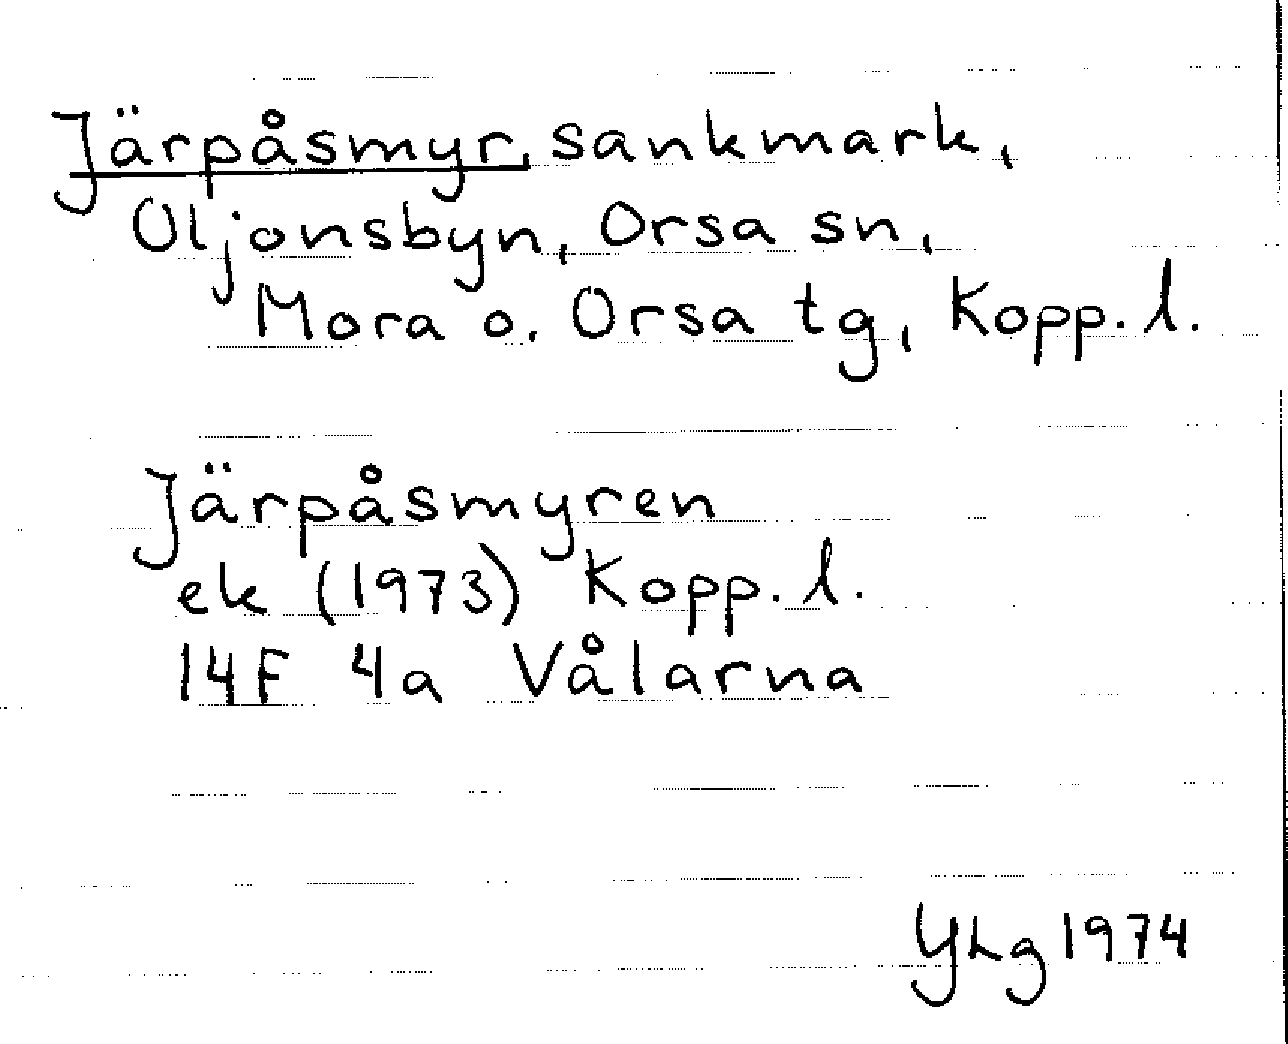 Järpåsmyr, sankmark,
Oljonsbyn, Orsa sn,
Mora o. Orsa tg, Kopp. l.
Järpåsmyren
ek (1973) Kopp. l.
14F 4a Vålarna
YLg 1974